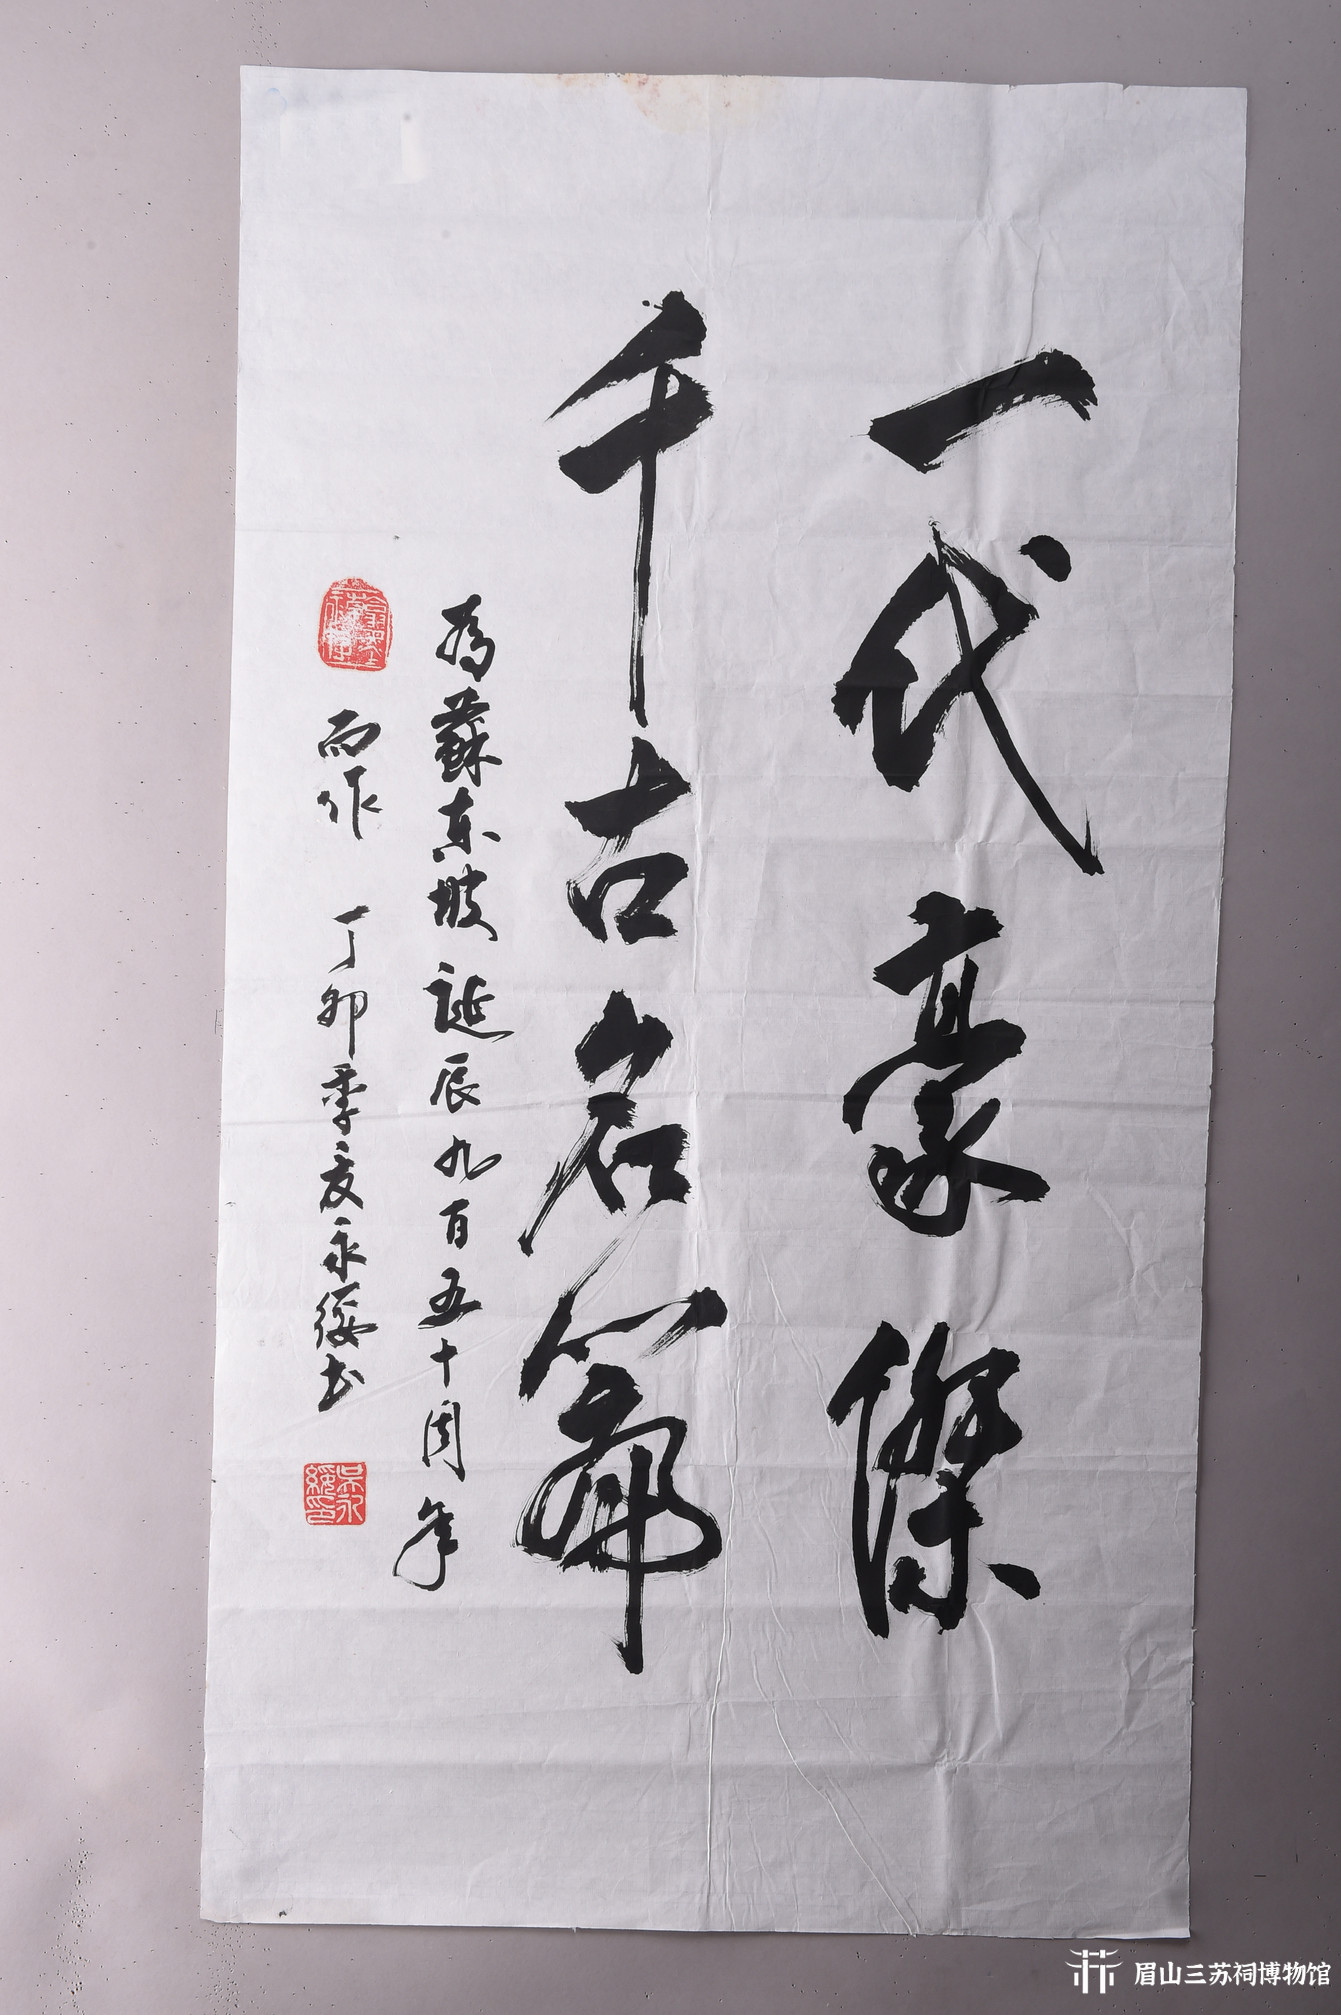 一代豪傑
千古名篇
為蘇東坡誕辰九百五十周年
而作 丁卯季夏永綏书
吴永綏印
眉山三苏祠博物馆